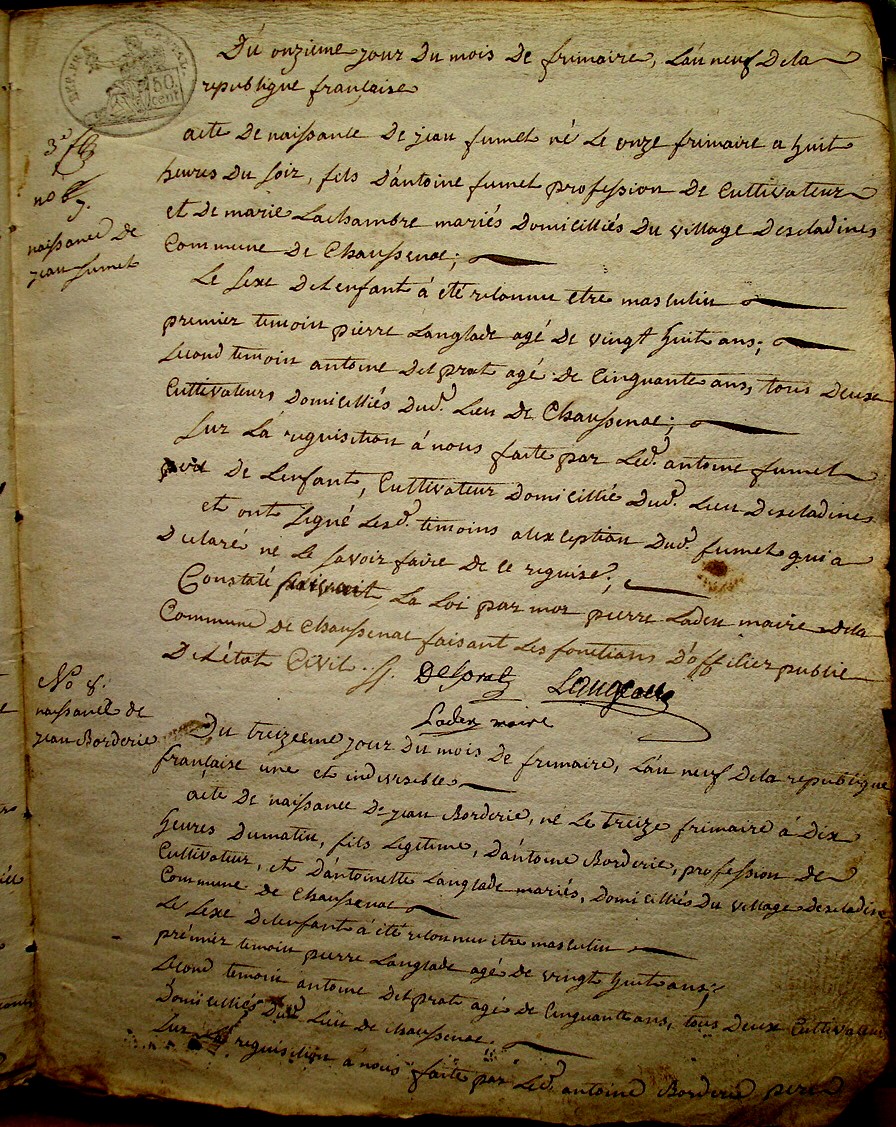 DEP. DU CANTAL
50 cent
Du onzieme jour du mois de frimaire, L'an neuf dela
republique française
3e
no 7.
naissance de
jean fumel
acte de naissance de jean fumel né le onze frimaire a huit
heures du soir, fils d'antoine fumel profession de Cultivateur
et de marie Lachambre mariés domiciliés du village descladines
Commune de Chaussenac;
Le sexe del'enfant à été reconnu etre masculin
premier temoin pierre Langlade agé de vingt huit ans;
second temoin antoine delprat agé de Cinquante ans, tous deux
Cultivateurs domiciliés dud. Lieu de Chaussenac;
Sur La requisition à nous faite par Led. antoine fumel
pere de L'enfant, Cultivateur domicilié dud. Lieu descladines
et ont signé Lesd. temoins a lexception dud. fumel qui a
declaré ne Le savoir faire de ce requise;
Constaté suivant La Loi par moi pierre Laden maire dela
Commune de Chaussenac faisant Les fonctions d'officier public
del'état Civil.
Delprat Langlade
Laden maire
No 8.
naissance de
jean Borderie
Du treizeime jour du mois de frimaire, L'an neuf dela republique
française une et indivisible
acte de naissance de jean Borderie, né Le treize frimaire à dix
heures dumatin, fils Legitime, d'antoine Borderie, profession de
Cultivateur, et d'antoinette Langlade mariés, domiciliés du village descladines
Commune de Chaussenac
Le sexe del'enfant à été reconnu etre masculin
prémier temoin pierre Langlade agé de vingt huit ans;
second temoin antoine delprat agé de Cinquante ans, tous deux Cultivateurs
domiciliés dud. Lieu de chaussenac
Sur La requisition à nous faite par Led. antoine Borderie pere